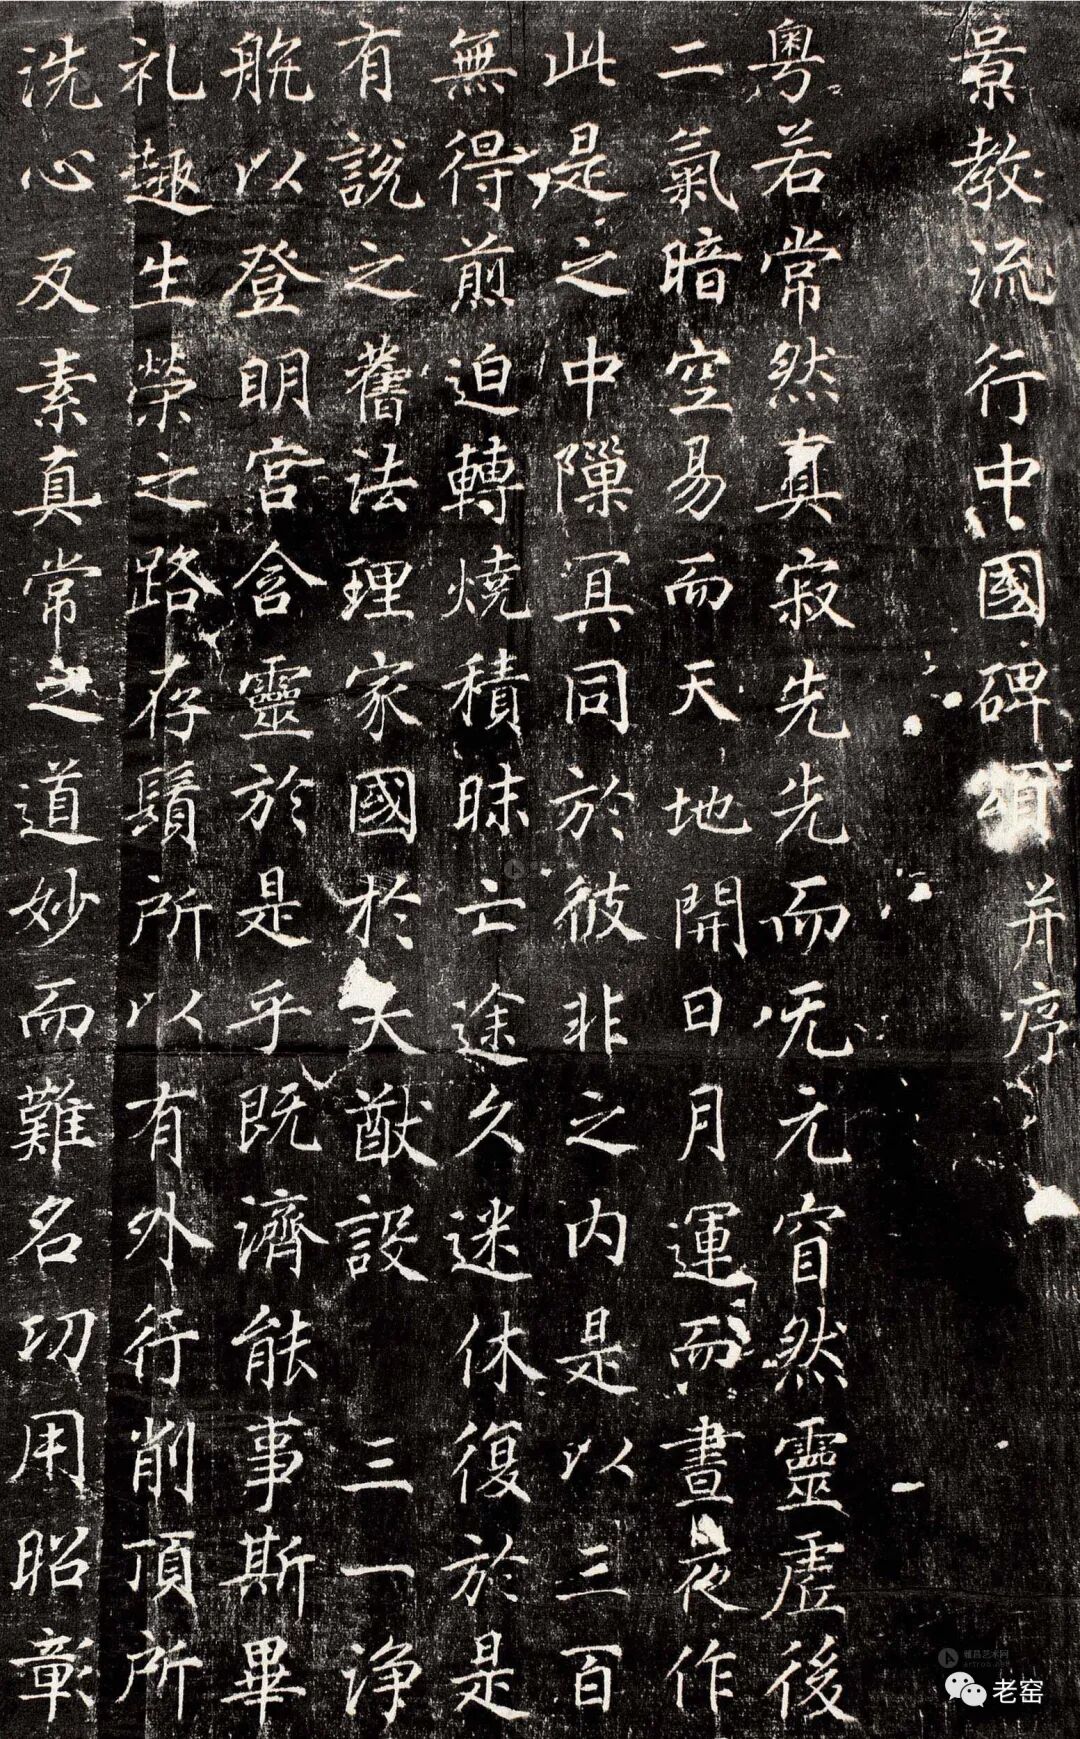 景教流行中國碑頌并序
粵若常然真寂先先而无元窅然靈虛後
二氣暗空易而天地開日月運而晝夜作
此是之中隟冥同於彼非之内是以三百
無得煎迫轉燒積昧亡途久迷休復於是
有說之舊法理家國於大猷設三一淨
航以登明宮含靈於是乎既濟能事斯畢
礼趣生榮之路存鬚所以有外行削頂所
洗心反素真常之道妙而難名功用昭彰
雅昌艺术网
老窑